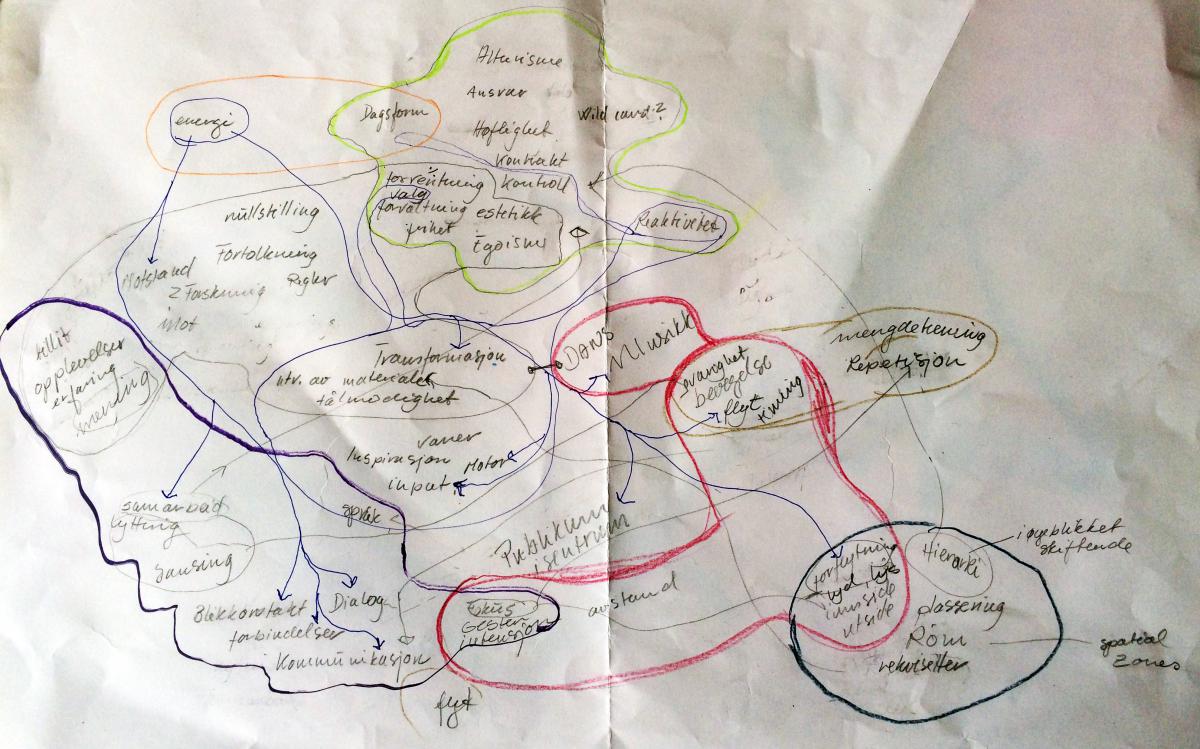 Altruisme
Ansvar
Dagsform
Wild card?
energi
Høflighet
Kontrakt
forventning
Kontroll
valg
forvaltning
estetikk
frihet
Egoisme
Reaktivitet
nullstilling
Fortolkning
Motstand
Forskning
Regler
imot
tillit
opplevelser
erfaring
mening
Transformasjon
utv. av materialet
tålmodighet
Dans
Musikk
svanghet
bevegelse
flyt
mengdetrening
Repetisjon
vaner
Inspirasjon
Motor
input
språk
samarbeid
lytting
Sansing
Publikum
i sentrum
Blikkontakt
Dialog
forbindelser
Kommunikasjon
Fokus
Gester
intensjon
avstand
flyt
forflytning
lyd, lys
innside
utside
Hierarki
i øyeblikket
skiftende
plassering
Rom
rekvisitter
spatial
zones